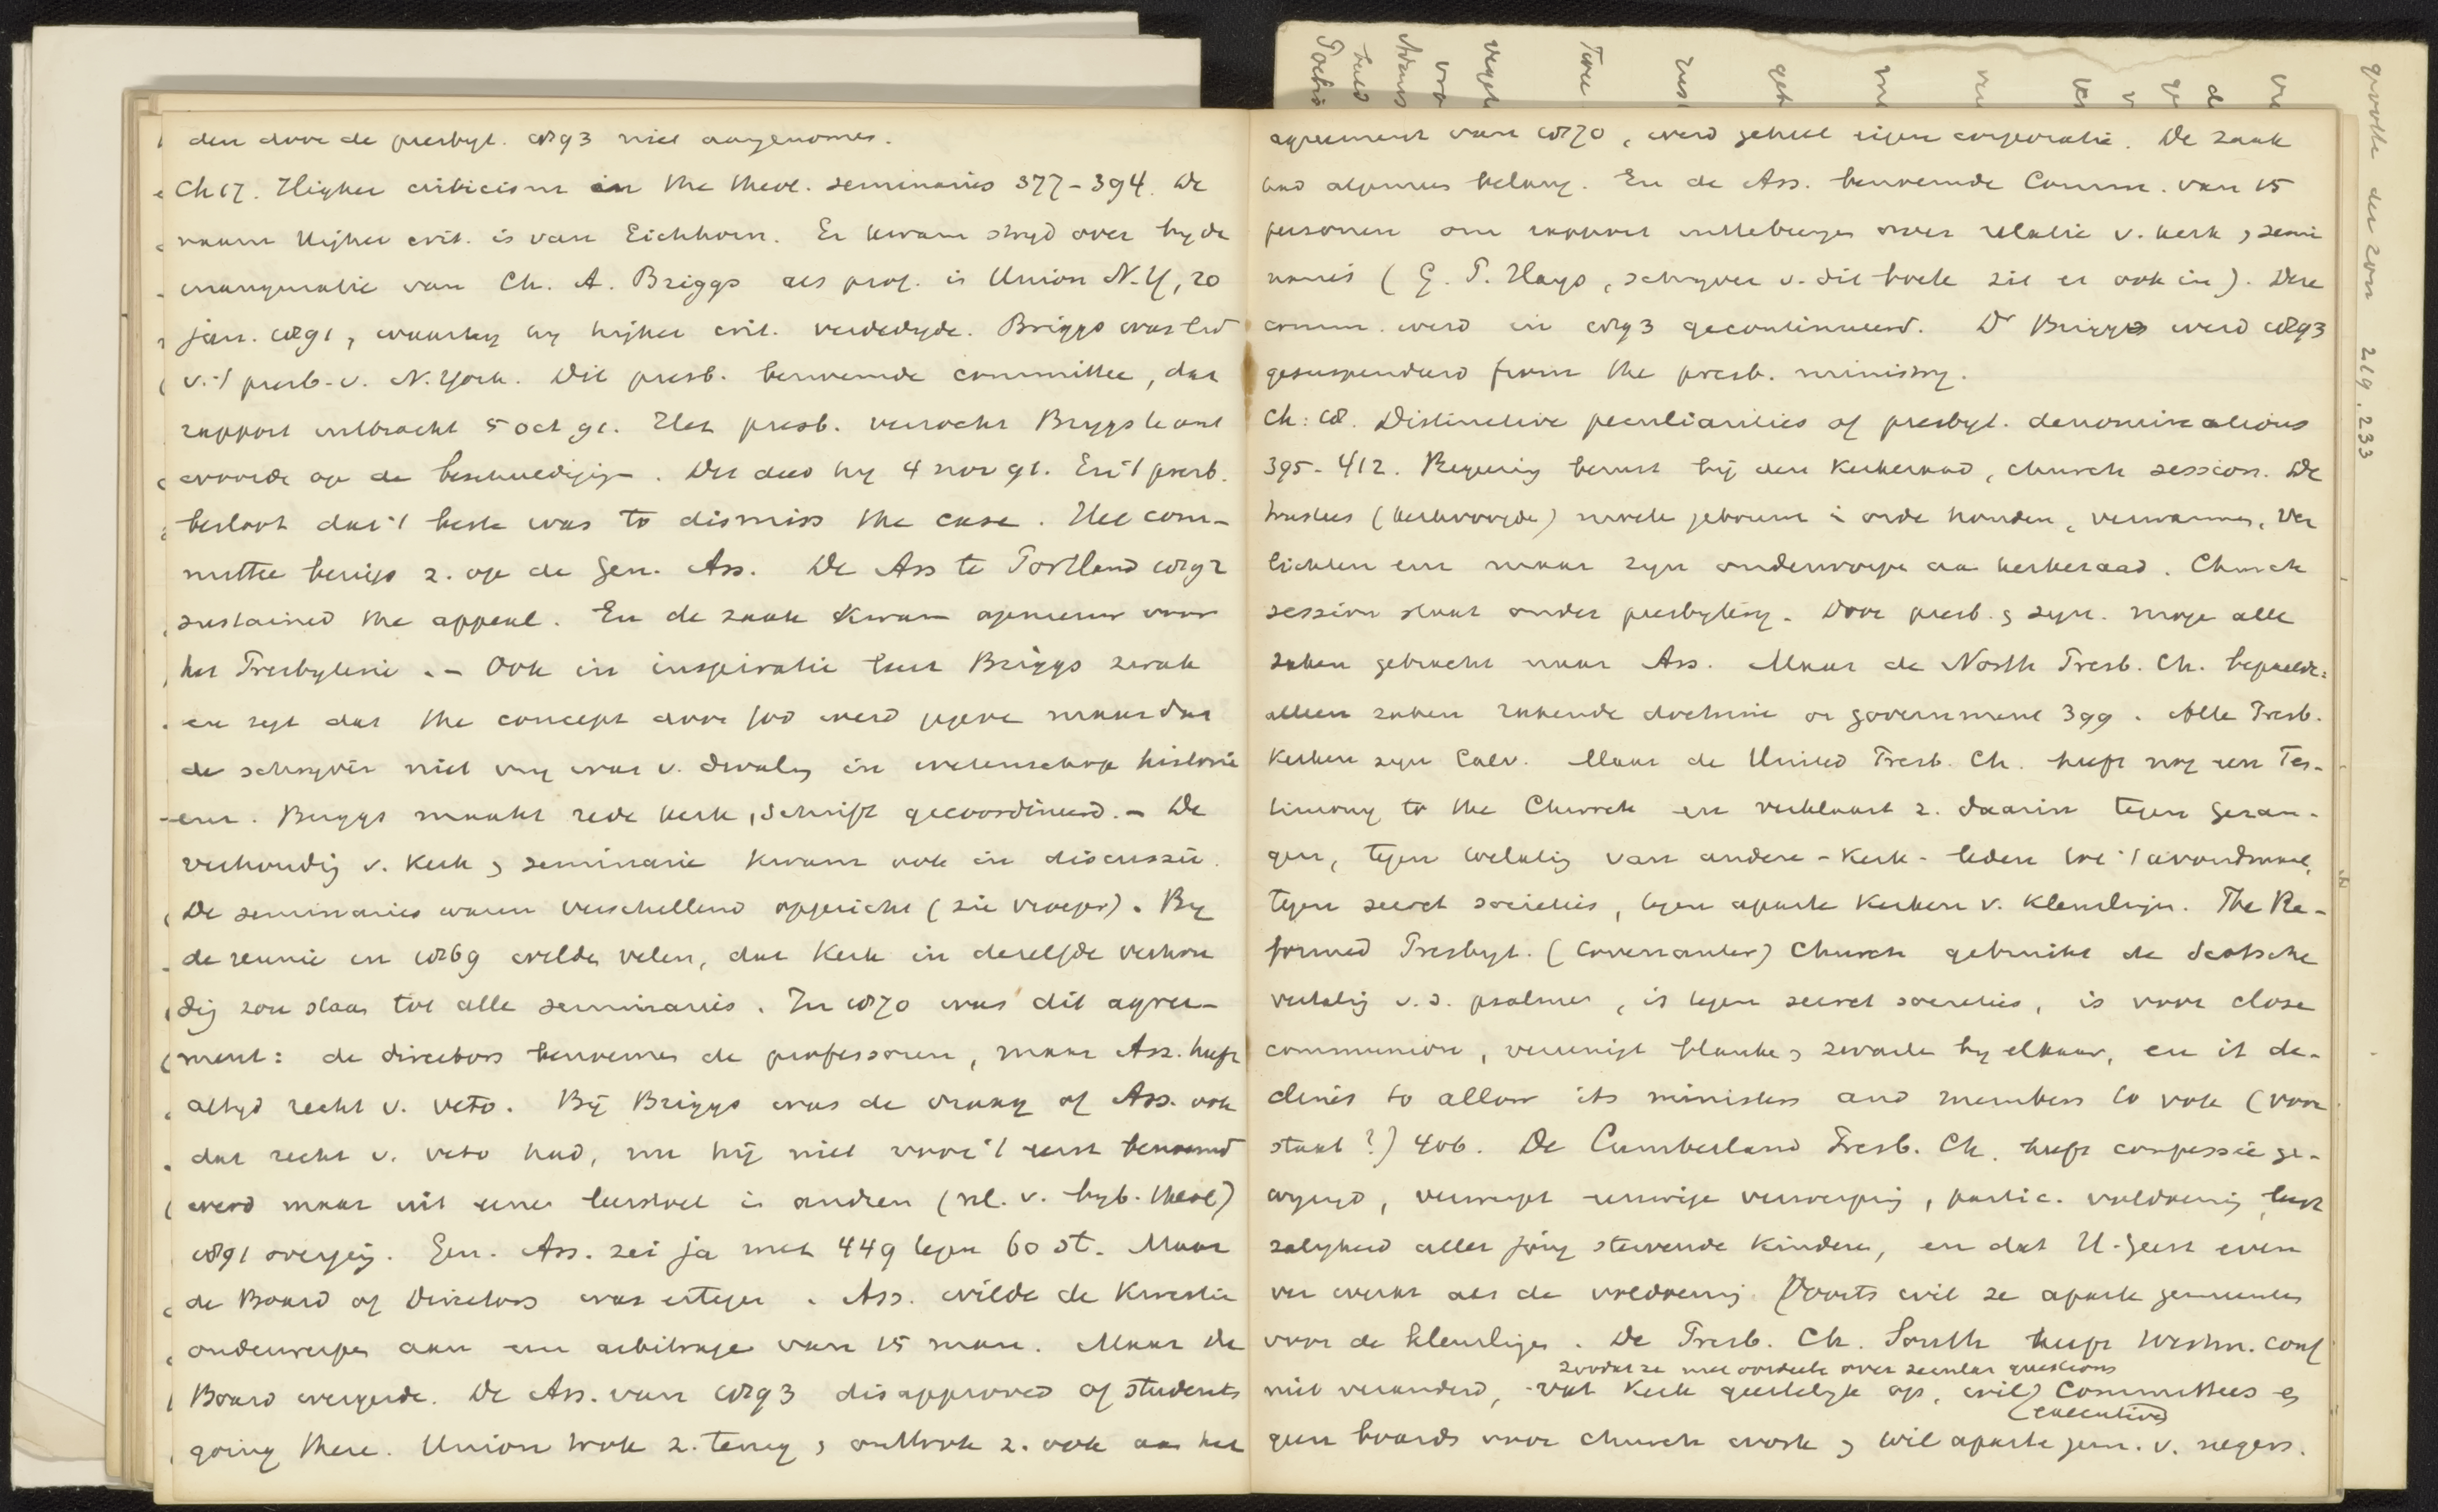 den door de presbyt. 1893 niet aangenomen.
Ch 17. Higher criticism in the theol. seminaries 377-394. De
naam higher crit. is van Eichhorn. Er kwam stryd over by de
inauguratie van Ch. A. Briggs als prof. in Union N.Y, 20
jan. 1891, waarby hy higher crit. verdedigde. Briggs was lid
v.'t presb. v. N. York. Dit presb. benoemde committee, dat
rapport uitbracht 5 oct 91. Het presb. verzocht Briggs te ant
woorde op de beschuldigigen. Dit deed hy 4 nov 91. En 't presb.
besloot dat 't beste was to dismiss the case. Het com-
mittee beriep z. op de Gen. Ass. De Ass te Portland 1892
sustained the appeal. En de zaak kwam opnieuw voor
het Presbyterie. - Ook in inspiratie leer Briggs zwak
en zegt dat the concept door God werd gegeve maar dat
de schryver niet vry was v. dwaling in wetenschap historie
enz. Briggs maakt rede kerk, Schrift gecoordineerd. - De
verhoudig v. Kerk & seminarie kwam ook in discussie.
De seminaries waren verschillend opgericht (zie vroeger). By
de reunie in 1869 wilde velen, dat Kerk in dezelfde verhou
dig zou staan tot alle seminaries. In 1870 was dit agree-
ment: de directors benoemen de professoren, maar Ass. heeft
altyd recht v. veto. Bij Briggs was de vraag of Ass. ook
dat recht v. veto had, nu hij niet voor 't eerst benoemd
werd maar uit eene leerstoel in andren (nl. v. byb. theol)
1891 overging. Gen. Ass. zei ja met 449 tegen 60 st. Maar
de Board of Directors was ertegen. Ass. wilde de kwestie
onderwerpen aan een arbitrage van 15 man. Maar de
Board weigerde. De Ass. van 1893 disapproved of students
going there. Union trok z. terug & onttrok z. ook aan het
agreement van 1870, werd geheel eigen corporatie. De zaak
had algemeen belang. En de Ass. benoemde Comm. van 15
personen om rapport uittebrengen over relatie v. kerk & semi
naries (G. P. Hays, schryver v. dit boek zit er ook in). Deze
comm. werd in 1893 gecontinueerd. Dr Briggs werd 1893
gesuspendeerd from the presb. ministry.
Ch: 18. Distinctive peculiarities of presbyt. denominations
395-412. Regering berust bij den Kerkeraad, church session. De
trustees (kerkvoogde) moete gebouw in orde houden, verwarmen, ver
lichten enz maar zyn onderworpe aan kerkeraad. Church
session staat onder presbytery. Door presb. & syn. moge alle
zaken gebracht naar Ass. Maar de North Presb. Ch. bepaalde:
alleen zaken rakende doctrine or government 399. Alle Presb.
Kerken zyn Calv. Maar de United Presb. Ch. heeft nog een Tes-
timony to the Church en verklaart z. daarin tegen gezan-
gen, tegen toelating van andere-kerk-leden tot 't avondmaal,
tegen secret societies, tegen aparte kerken v. kleurlingen. The Re-
formed Presbyt. (Covenanter) Church gebruikt de Scotsche
vertaling v. d. psalmen, is tegen secret societies, is voor close
communion, vereenigt blanke & zwarte by elkaar, en it de-
clines to allow its ministers and members to vote (voor
staat?) 406. De Cumberland Presb. Ch. heeft confessie ge-
wyzigd, verwerpt eeuwige verwerping, partic. voldoening, leert
zaligheid aller jong stervende kinderen, en dat H. Geest even
ver werkt als de voldoening. Voorts wil ze aparte gemeenten
voor de kleurlingen. De Presb. Ch. South heeft Westm. conf
zoodat ze niet oordeelt over secular questions
niet veranderd, vat Kerk geestelyk op, wil Committees en
(executive)
geen boards voor church work & wil aparte gem. v. negers.
grootte der zon 219, 233